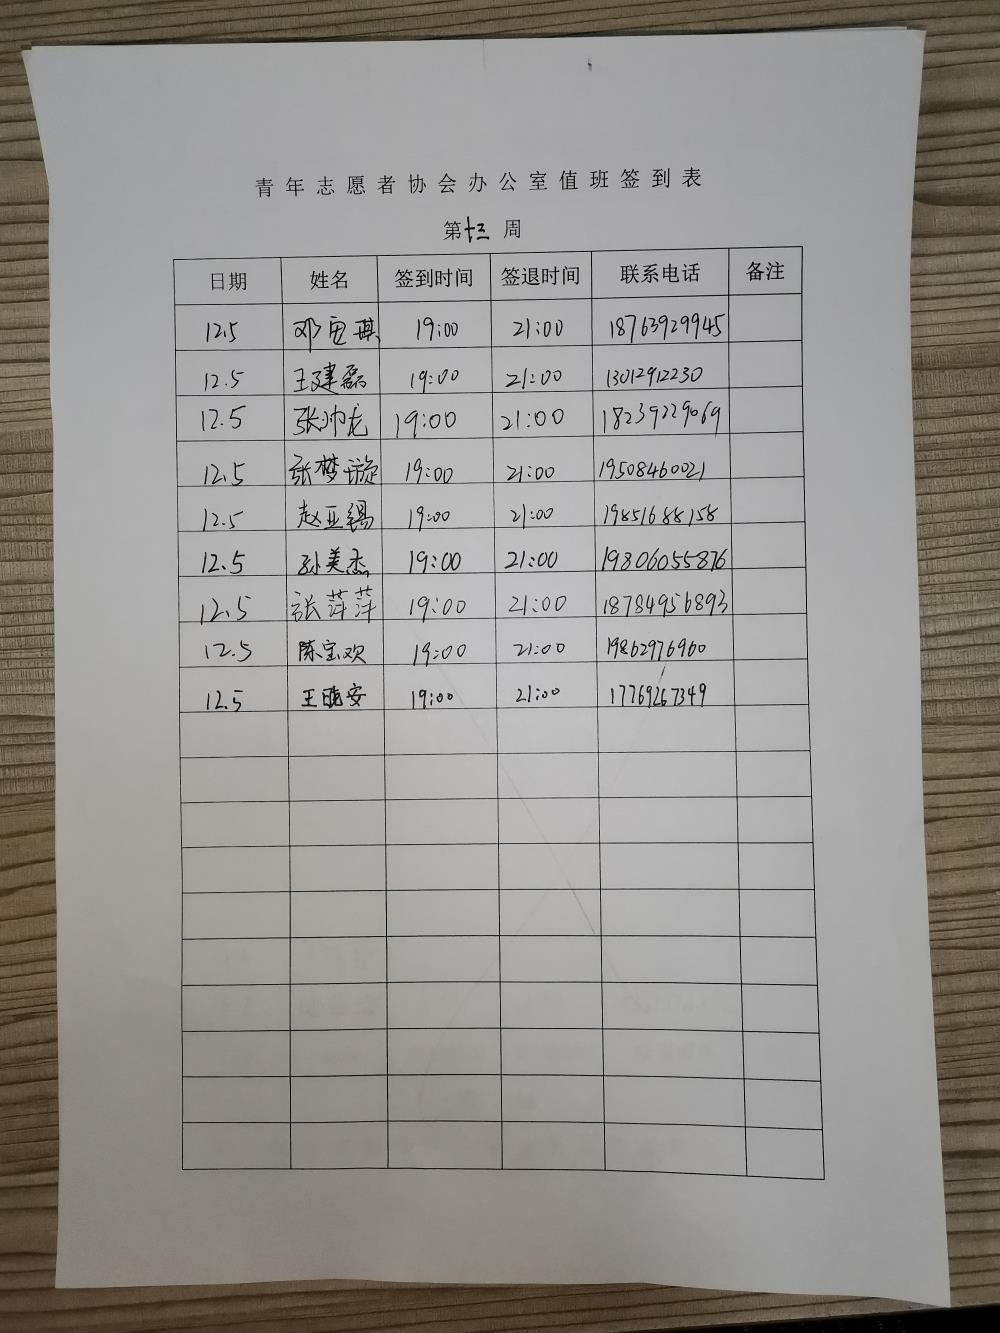 青年志愿者协会办公室值班签到表
第十三周
日期 姓名 签到时间 签退时间 联系电话 备注
12.5 邓 琪 19:00 21:00 18763929945
12.5 王建磊 19:00 21:00 13012912230
12.5 张帅龙 19:00 21:00 18239229069
12.5 张梦璇 19:00 21:00 19508460021
12.5 赵亚锡 19:00 21:00 19851688158
12.5 孙美杰 19:00 21:00 19806055876
12.5 张萍萍 19:00 21:00 18784956893
12.5 陈宝欢 19:00 21:00 19862976960
12.5 王 安 19:00 21:00 17769267349